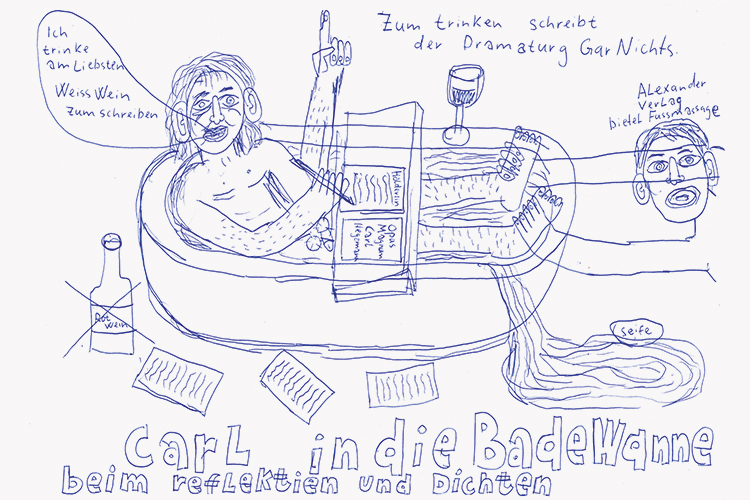 Ich
trinke
am Liebsten
Weiss Wein
Zum schreiben
Zum trinken schreibt
der Dramaturg Gar Nichts.
Alexander
Verlag
bietet Fussmassage
Hölderlin
Opus
Magnum
Carl
Hegemann
Rot
wein
seife
Carl in die BadeWanne
beim refLektien und Dichten